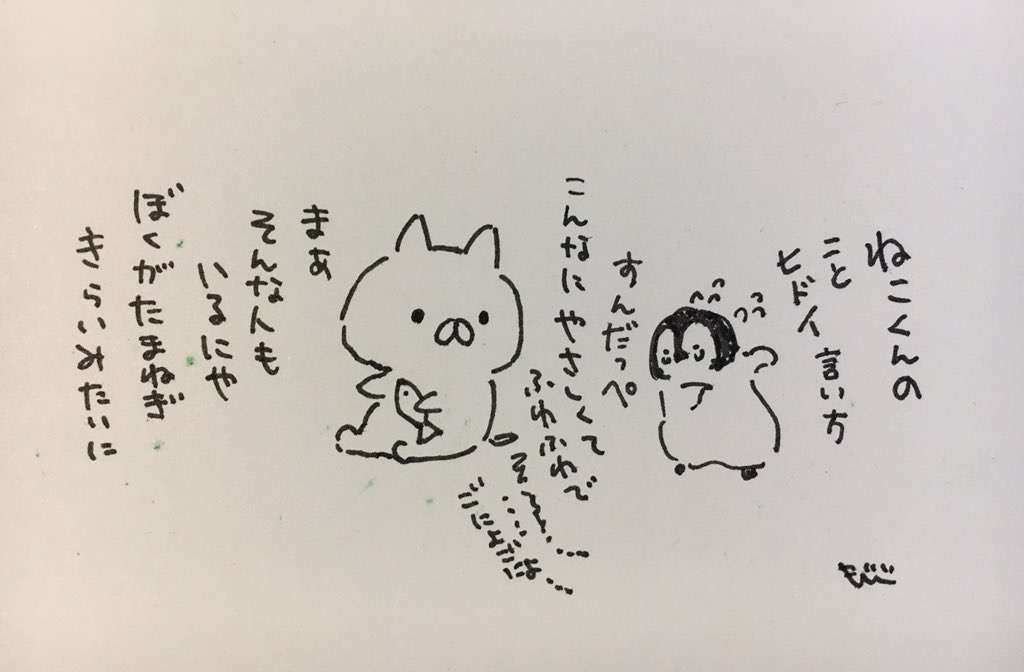 ねこくんの
こと
ヒドイ言い方
すんだっぺ
こんなにやさしくて
ふわふわで
まぁ
そんな人も
いるにゃ
ぼくがたまねぎ
きらいみたいに